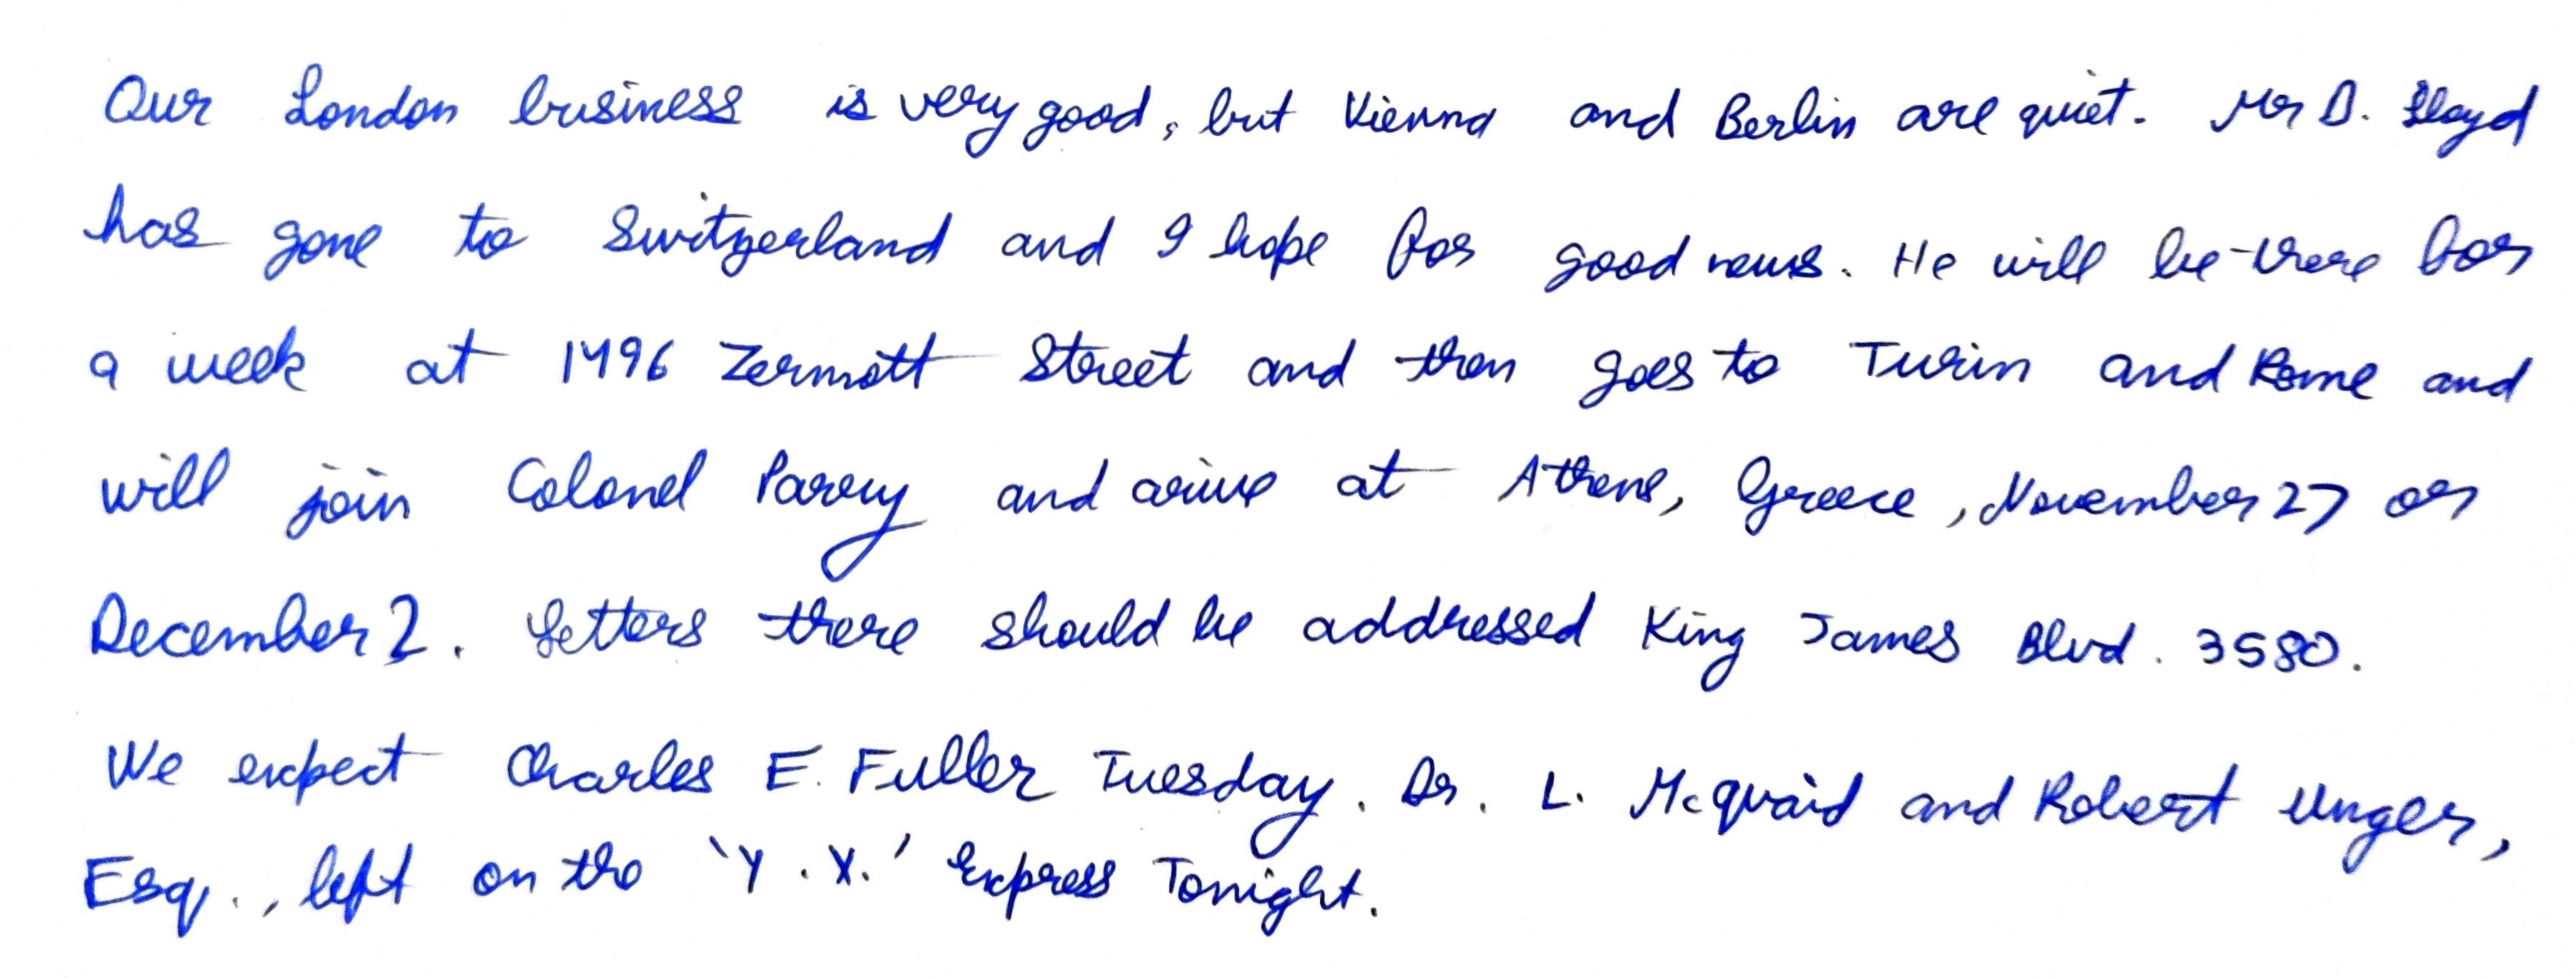 Our London business is very good, but Vienna and Berlin are quiet. Mr D. Lloyd
has gone to Switzerland and I hope for good news. He will be there for
a week at 1496 Zermott Street and then goes to Turin and Rome and
will join Colonel Parry and arive at Athens, Greece, November 27 or
December 2. Letters there should be addressed King James Blvd. 3580.
We expect Charles E. Fuller Tuesday. Dr. L. McQuaid and Robert Unger,
Esq., left on the 'Y.X.' Express Tonight.